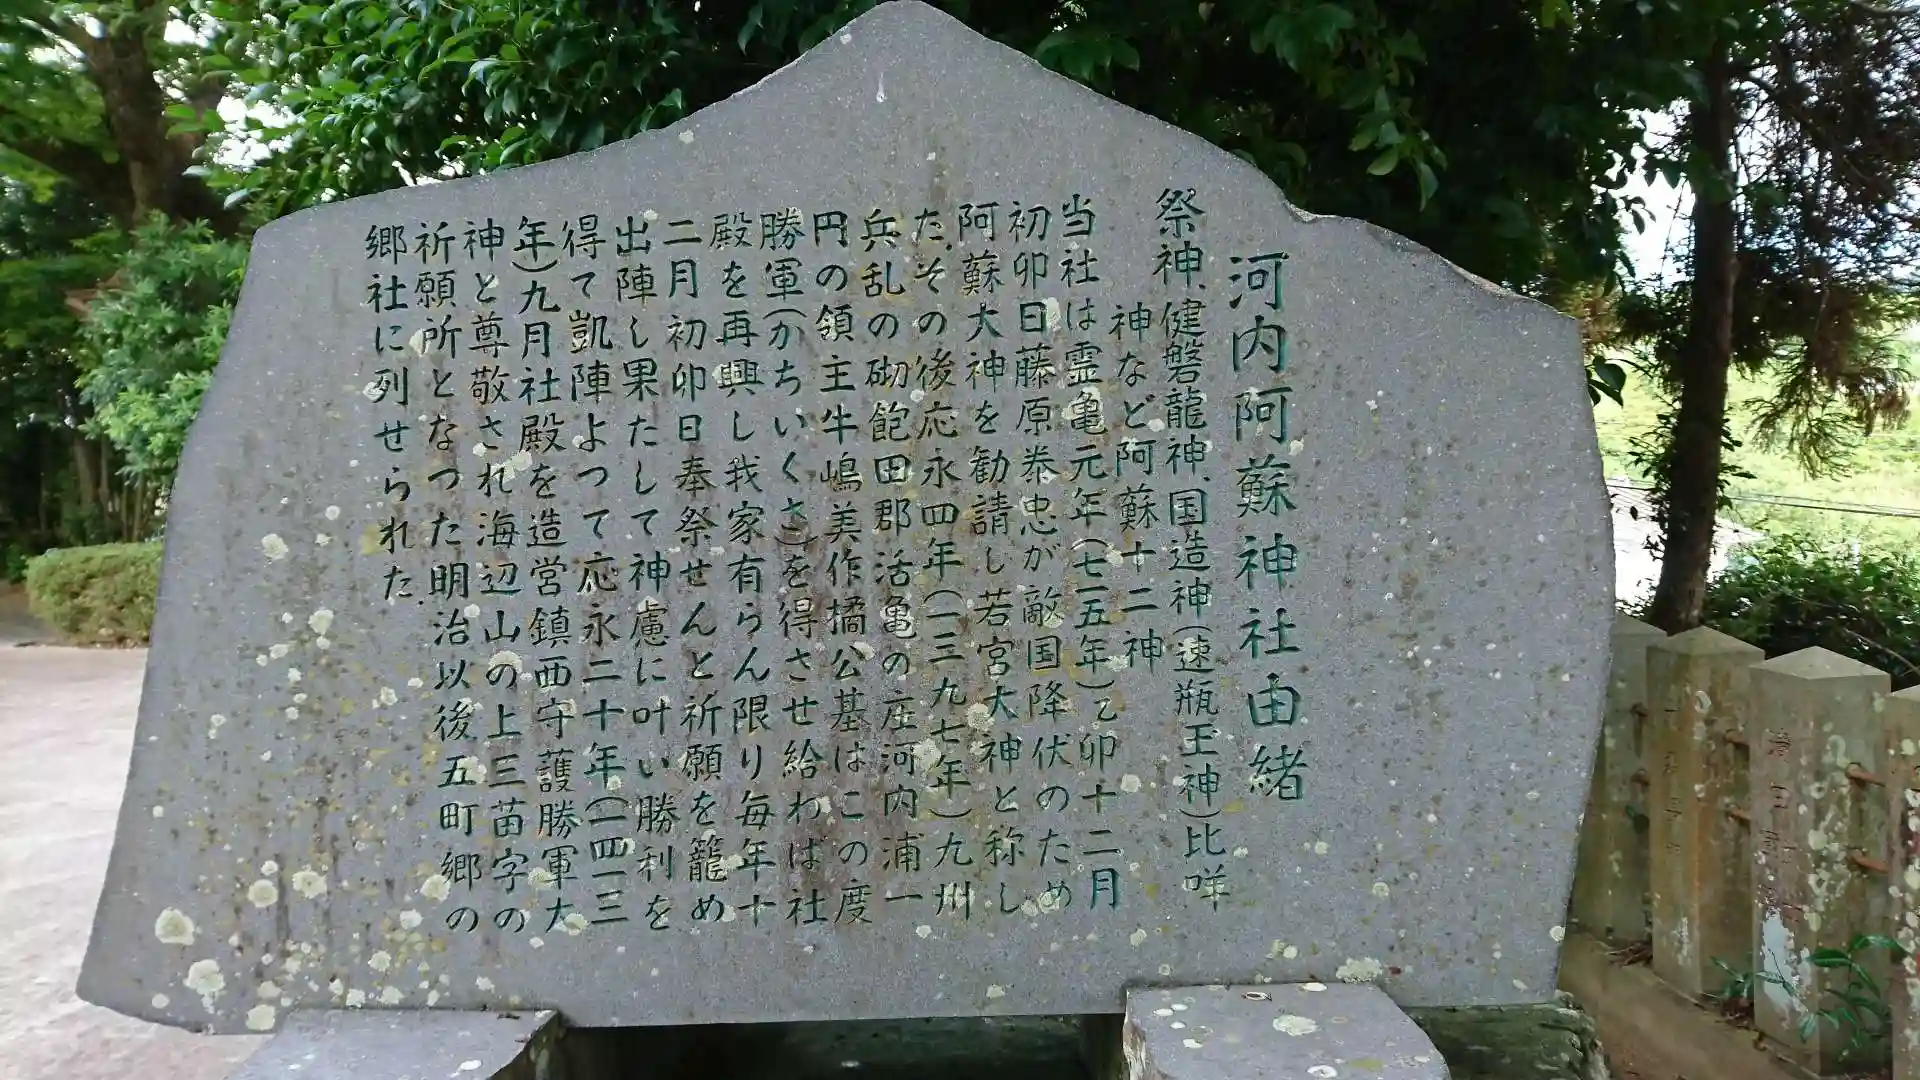 河内阿蘇神社由緒
祭神、健磐龍神、国造神(速瓶玉神)比咩
神など阿蘇十二神
当社は霊亀元年(七一五年)乙卯十二月
初卯日藤原泰忠が敵国降伏のため
阿蘇大神を勧請し若宮大神と称し
た。その後応永四年(一三九七年)九州
兵乱の砌飽田郡活亀の庄河内浦一
円の領主牛嶋美作橘公基はこの度
勝軍(かちいくさ)を得させ給わば社
殿を再興し我家有らん限り毎年十
二月初卯日奉祭せんと祈願を籠め
出陣し果たして神慮に叶い勝利を
得て凱陣よつて応永二十年(一四一三
年)九月社殿を造営鎮西守護勝軍大
神と尊敬され海辺山の上三苗字の
祈願所となつた明治以後五町郷の
郷社に列せられた。